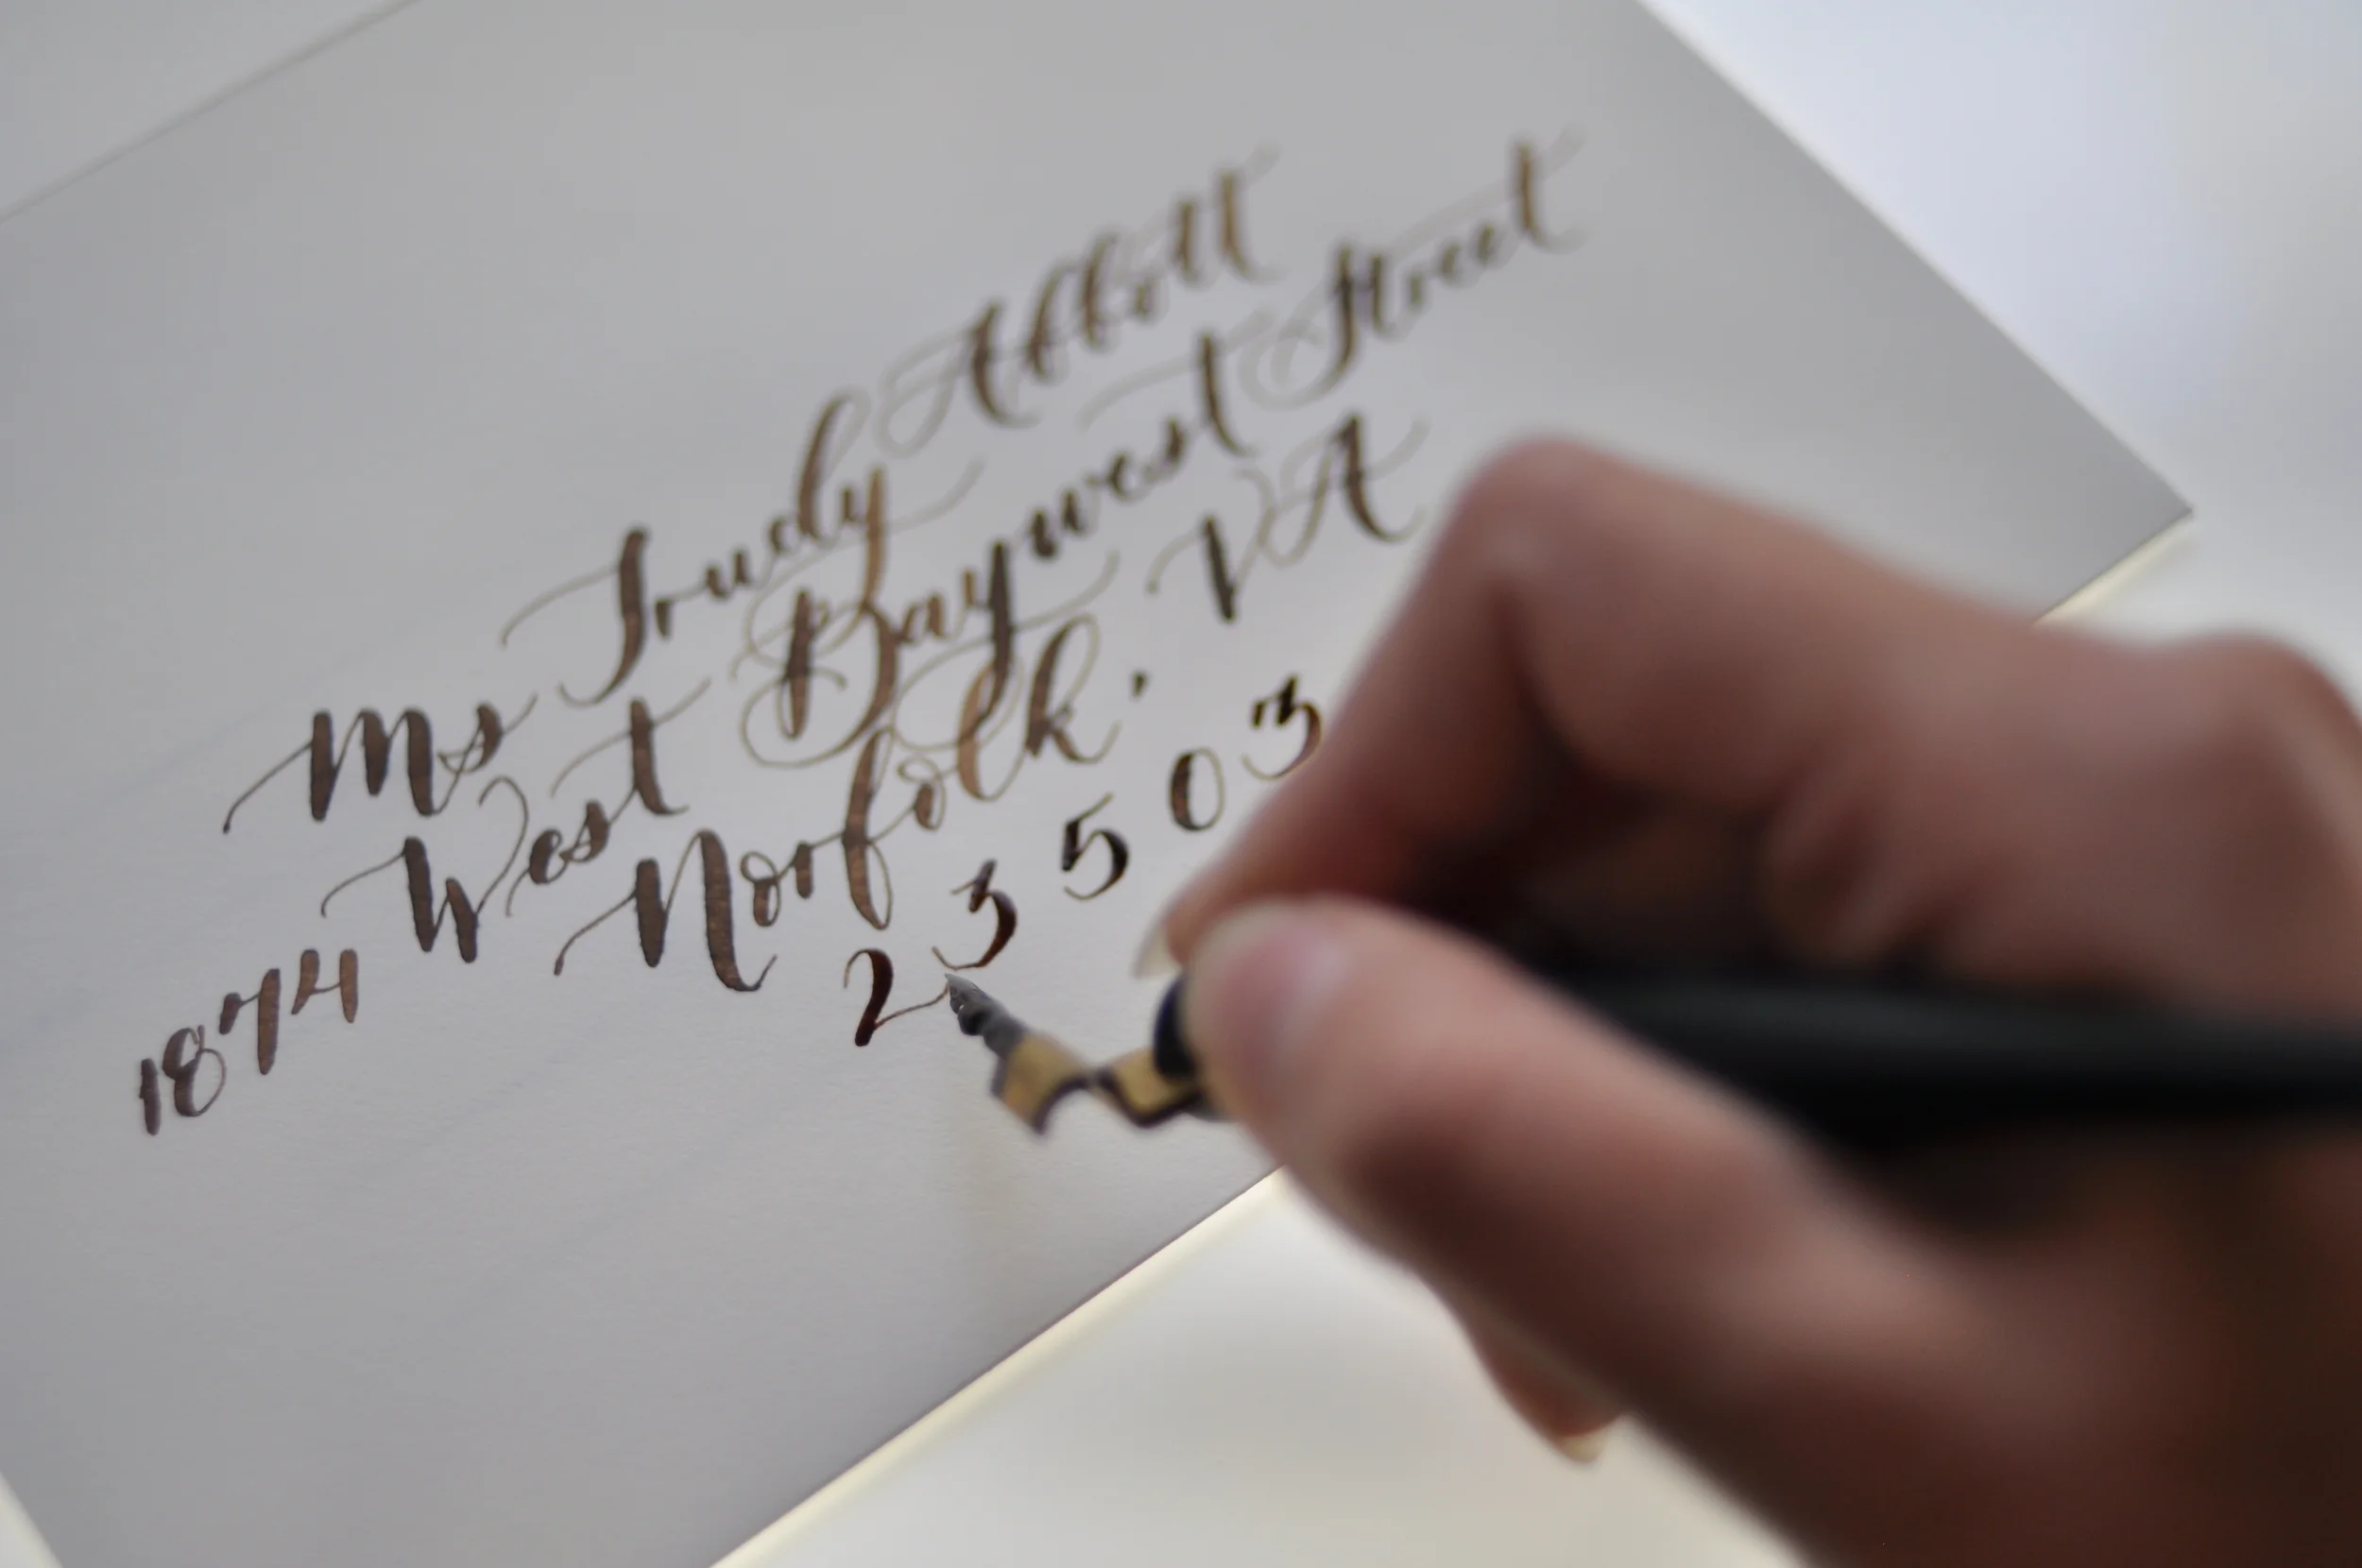 Ms Trudy Abbott
1874 West Baywest Street
Norfolk, VA
23503